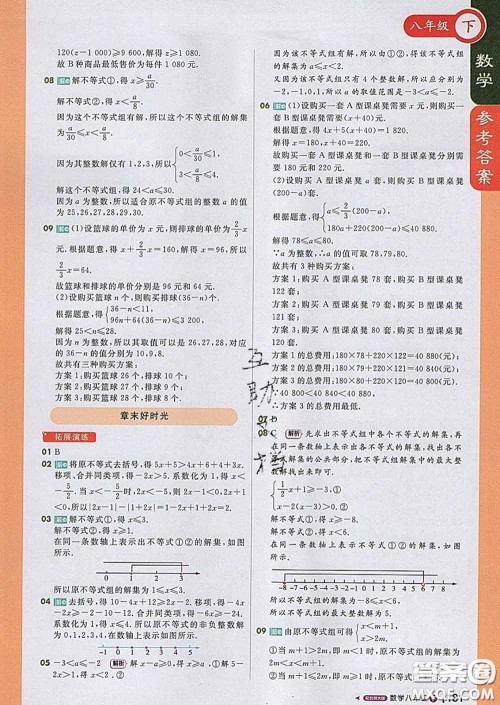 八年级 下
数学
参考答案
120(z-1 000)≥9 600,解得 z≥1 080.
故B种商品最低售价为每件 1 080 元.
08 解不等式①,得 x≥a/30.
解不等式②,得 x<a/8.
因为这个不等式组有解,所以这个不等式组的解集为
a/30≤x<a/8.
因为其整数解仅有 1,2,3,所以{0<a/30≤1, 3<a/8≤4.
解这个不等式组,得 24<a≤30.
因为 a 为整数,所以适合原不等式组的整数 a 的值
为 25,26,27,28,29,30.
09 (1)设篮球的单价为 x 元,则排球的单价为 2/3 x
元,根据题意,得 x+2/3 x=160,解得 x=96,所以
2/3 x=64.
故篮球和排球的单价分别是 96 元和 64 元.
(2)设购买篮球 n 个,则购买排球(36-n)个.
根据题意,得{36-n<11, 96n+64(36-n)≤3 200.
解得 25<n≤28.
因为 n 为整数,所以其取值可以是 26,27,28,对应
的 36-n 的值分别为 10,9,8.
故共有三种购买方案:
方案 1:购买篮球 26 个,排球 10 个;
方案 2:购买篮球 27 个,排球 9 个;
方案 3:购买篮球 28 个,排球 8 个.
章末好时光
拓展演练
01 B
02 将原不等式去括号,得 5x+5>4x+6+4+3x.
移项、合并同类项,得-2x>5.系数化为 1,得 x<
-5/2.当 x<-5/2 时,2x-1<0,2x+1
<0,所以|2x-1|-|2x+1|=1-2x+2x+1=2.
03 解不等式①,得 x≤3.
解不等式②,得 x≥1.
在同一条数轴上表示出不等式①②的解集,如图
所示.
0 1 2 3
所以原不等式组的解集为 1≤x≤3.
04 去括号,得 10-4x+12≥2x-2.移项,得-4x
-2x≥-2-10-12.合并同类项,得-6x≥-24.
系数化为 1,得 x≤4.所以原不等式的非负整数解
为 0,1,2,3,4.在数轴上表示如图所示.
-1 0 1 2 3 4 5
05 -3<a≤-2 解析 解 x-a≥0,得 x≥a.解 5-
2x>1,得 x<2.
因为这个不等式组有解,所以由①②,得该不等式组
的解集为 a≤x<2.
又因为该不等式组有 4 个整数解,所以总分别为
-2,-1,0,1,所以 a 的取值范围是-3<a≤-2.
06 (1)设购买一套 A 型课桌凳需要 x 元,则购买
一套 B 型课桌凳需要(x+40)元.
根据题意,得 4x+5(x+40)=1 820.
解得 x=180.所以 x+40=220.
故购买一套 A 型课桌凳和一套 B 型课桌凳分别需
要 180 元和 220 元.
(2)设购买 A 型课桌凳 a 套,则购买 B 型课桌凳
(200-a)套.
根据题意,得{a≤2/3(200-a), 180a+220(200-a)≤40 880.
解得 78≤a≤80.
∵a 为整数,∴a 的值可取 78,79,80.
故共有 3 种购买方案:
方案 1:购买 A 型课桌凳 78 套,购买 B 型课桌凳
122 套;
方案 2:购买 A 型课桌凳 79 套,购买 B 型课桌凳
121 套;
方案 3:购买 A 型课桌凳 80 套,购买 B 型课桌凳
120 套.
方案 1 的总费用:180×78+220×122=40 880(元);
方案 2 的总费用:180×79+220×121=40 840(元);
方案 3 的总费用:180×80+220×120=40 800(元).
∴方案 3 的总费用最低.
08 解析 先求出不等式组中各个不等式的解集,再
在同一条数轴上表示出不等式的解集,然后根据各
解集的公共部分,把不等式组的解集中的最大整
数解找出来即可.
{1/2 x+1≥-3,①
x-2(x-3)>0.②
解不等式①,得 x≥-8.
解不等式②,得 x<6.
在同一条数轴上表示不等式①②的解集,如图
所示.
-8 -7 -6 -5 -4 -3 -2 -1 0 1 2 3 4 5 6 7 8
所以原不等式组的解集为-8≤x<6.
故最大整数解为 5.
09 由原不等式组可得{x<m-1, x<1.
①当 m-1≤1,即 m≤2 时,原不等式组的解集为
x<m-1;
②当 m-1>1,即 m>2 时,原不等式组的解集为
x<1.
互助
数学八年级
答案圈